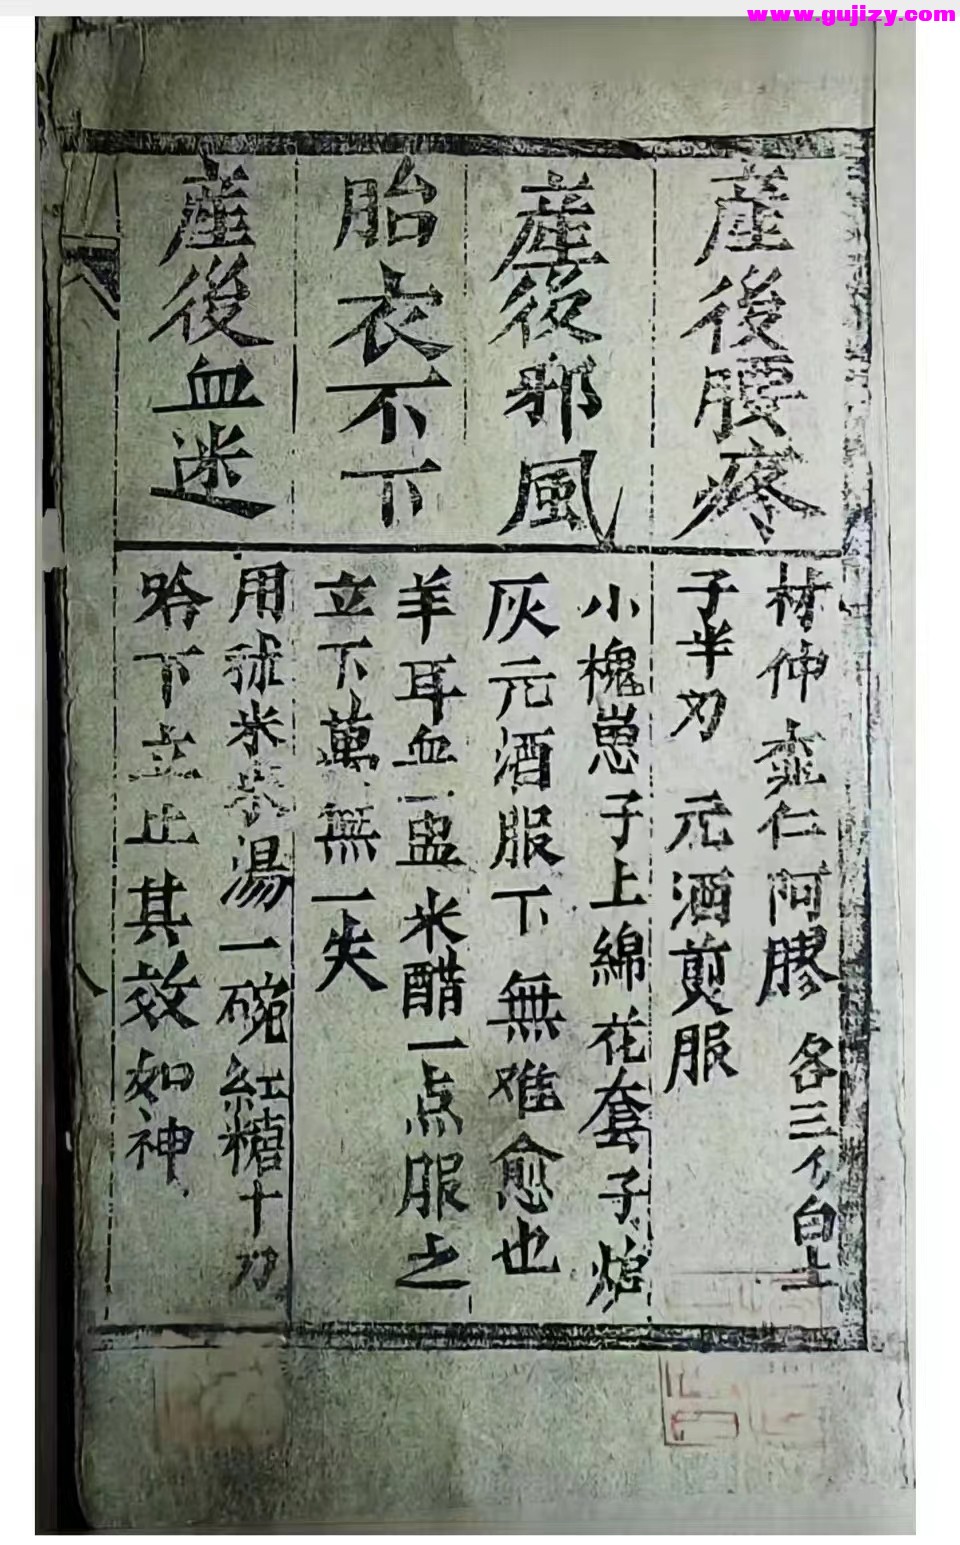 www.gujizy.com
產後腰疼
材仲桒仁阿膠 各三分白土
子半刃 元酒煎服
產後邪風
小槐崽子上綿花套子炉
灰元酒服下 無难愈也
胎衣不下
羊耳血一盅米醋一点服之
立下萬無一失
產後血迷
用秫米湯一碗紅糖十刃
哈下立止其效如神